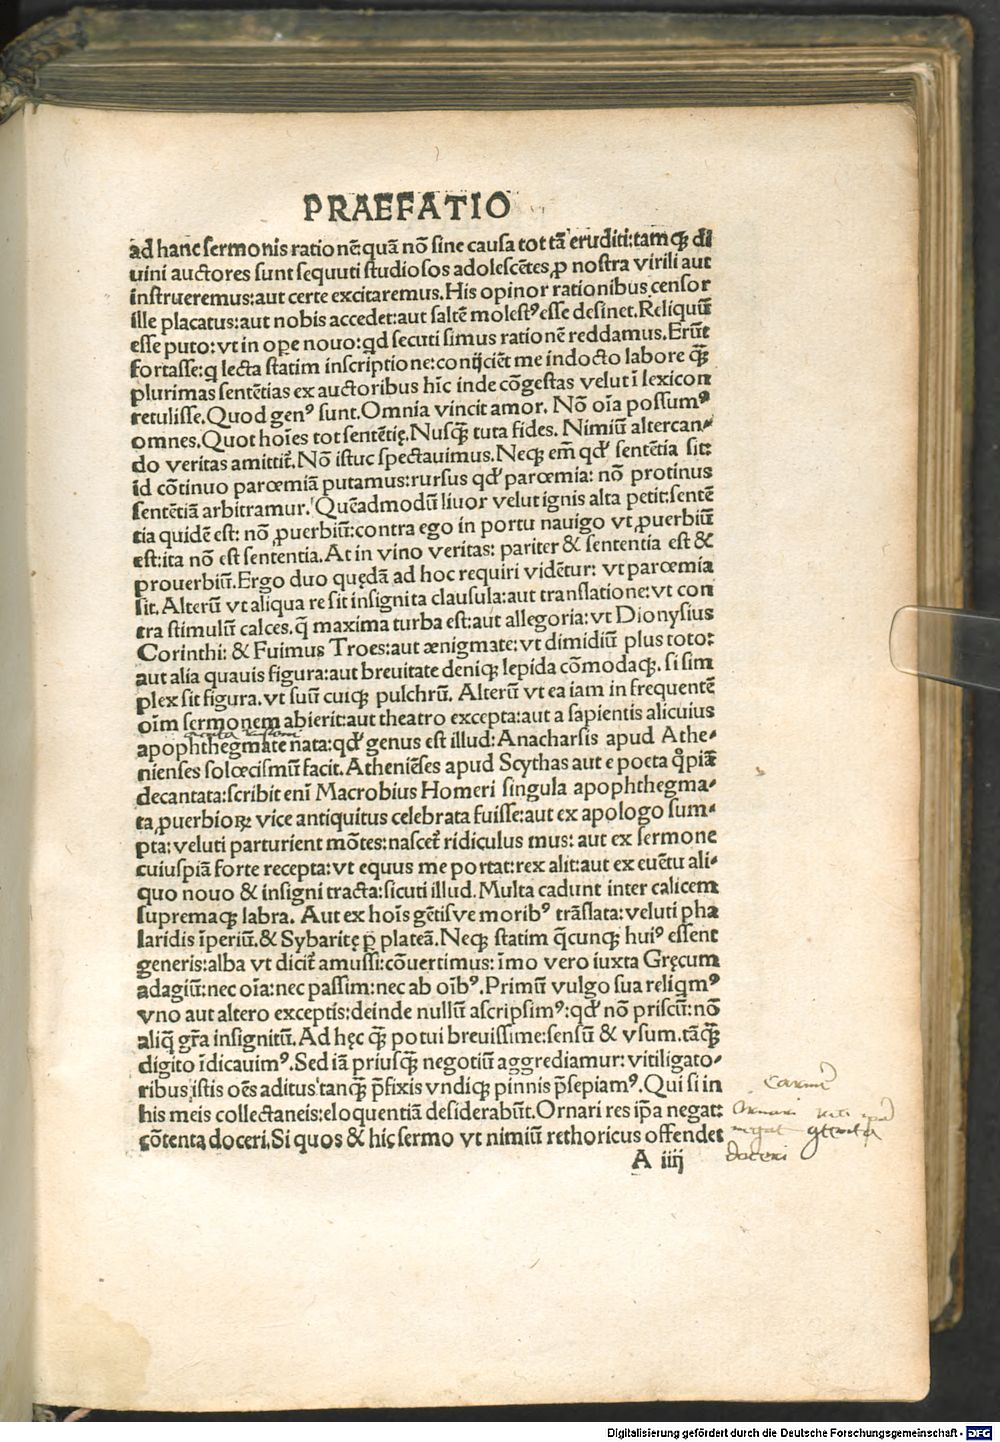 PRAEFATIO
ad hanc sermonis rationē: quā nō sine causa tot tā eruditi: tamq; di
uini auctores sunt sequuti studiosos adolescētes, ꝓ nostra virili aut
instrueremus: aut certe excitaremus. His opinor rationibus censor
ille placatus: aut nobis accedet: aut saltē molestꝰ esse desinet. Reliquū
esse puto: vt in oꝑe nouo: qd secuti simus rationē reddamus. Erūt
fortasse: q lecta statim inscriptione: conijciēt me indocto labore q̄ꝫ
plurimas sentētias ex auctoribus hīc inde cōgestas velut ī lexicon
retulisse. Quod genꝰ sunt. Omnia vincit amor. Nō oīa possumꝰ
omnes. Quot hoīes tot sentētię. Nusq̄ꝫ tuta fides. Nimiū altercan⸗
do veritas amittit̄. Nō istuc spectauimus. Neq; em̄ qđ sentētia sit:
id cōtinuo parœmiā putamus: rursus qđ parœmia: nō protinus
sentētiā arbitramur. Quēadmodū liuor velut ignis alta petit: sentē
tia quidē est: nō ꝓuerbiū: contra ego in portu nauigo vt ꝓuerbiū
est: ita nō est sententia. At in vino veritas: pariter & sententia est &
prouerbiū. Ergo duo quędā ad hoc requiri vidētur: vt parœmia
sit. Alterū vt aliqua re sit insignita clausula: aut translatione: vt con
tra stimulū calces. q̄ maxima turba est: aut allegoria: vt Dionysius
Corinthi: & Fuimus Troes: aut ænigmate: vt dimidiū plus toto:
aut alia quauis figura: aut breuitate deniq; lepida cōmodaq;. si sim
plex sit figura. vt suū cuiq; pulchrū. Alterū vt ea iam in frequentē
oīm sermonem abierit: aut theatro excepta: aut a sapientis alicuius
apophthegmate nata: qđ genus est illud: Anacharsis apud Athe⸗
nienses solœcismū facit. Atheniēses apud Scythas aut e poeta q̊piā
decantata: scribit enī Macrobius Homeri singula apophthegma⸗
ta, ꝓuerbioꝝ vice antiquitus celebrata fuisse: aut ex apologo sum⸗
pta: veluti parturient mōtes: nascet̄ ridiculus mus: aut ex sermone
cuiuspiā forte recepta: vt equus me portat: rex alit: aut ex euētu ali⸗
quo nouo & insigni tracta: sicuti illud. Multa cadunt inter calicem
supremaq; labra. Aut ex hoīs gētisve moribꝰ trāslata: veluti pha
laridis īperiū. & Sybaritę ꝑ plateā. Neq; statim q̄cunq; huiꝰ essent
generis: alba vt dicit̄ amussi: cōuertimus: īmo vero iuxta Gręcum
adagiū: nec oīa: nec passim: nec ab oībꝰ. Primū vulgo sua reliqmꝰ
vno aut altero exceptis: deinde nullū ascripsimꝰ: qđ nō priscū: nō
aliq̄ gr̄a insignitū. Ad hęc q̄ꝫ potui breuissime: sensū & vsum. tāq̄ꝫ
digito īdicauimꝰ. Sed iā priusq̄ꝫ negotiū aggrediamur: vitiligato⸗
ribus istis oēs aditus tanq̄ꝫ p̄fixis vndiq; pinnis p̄sepiamꝰ. Qui si in
his meis collectaneis: eloquentiā desiderabūt. Ornari res ip̄a negat:
cōtenta doceri. Si quos & hic sermo vt nimiū rethoricus offendet
A iiij
Ornari
negat
doceri
Digitalisierung gefördert durch die Deutsche Forschungsgemeinschaft - DFG